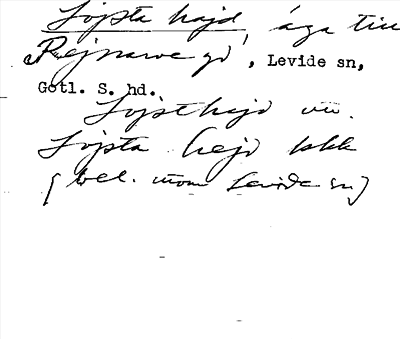 Lojsta hajd, äga till
Rejnarve gd, Levide sn,
Gotl. S. hd.
Lojsthajd
Lojsta hejd
(bel. inom Levide sn)